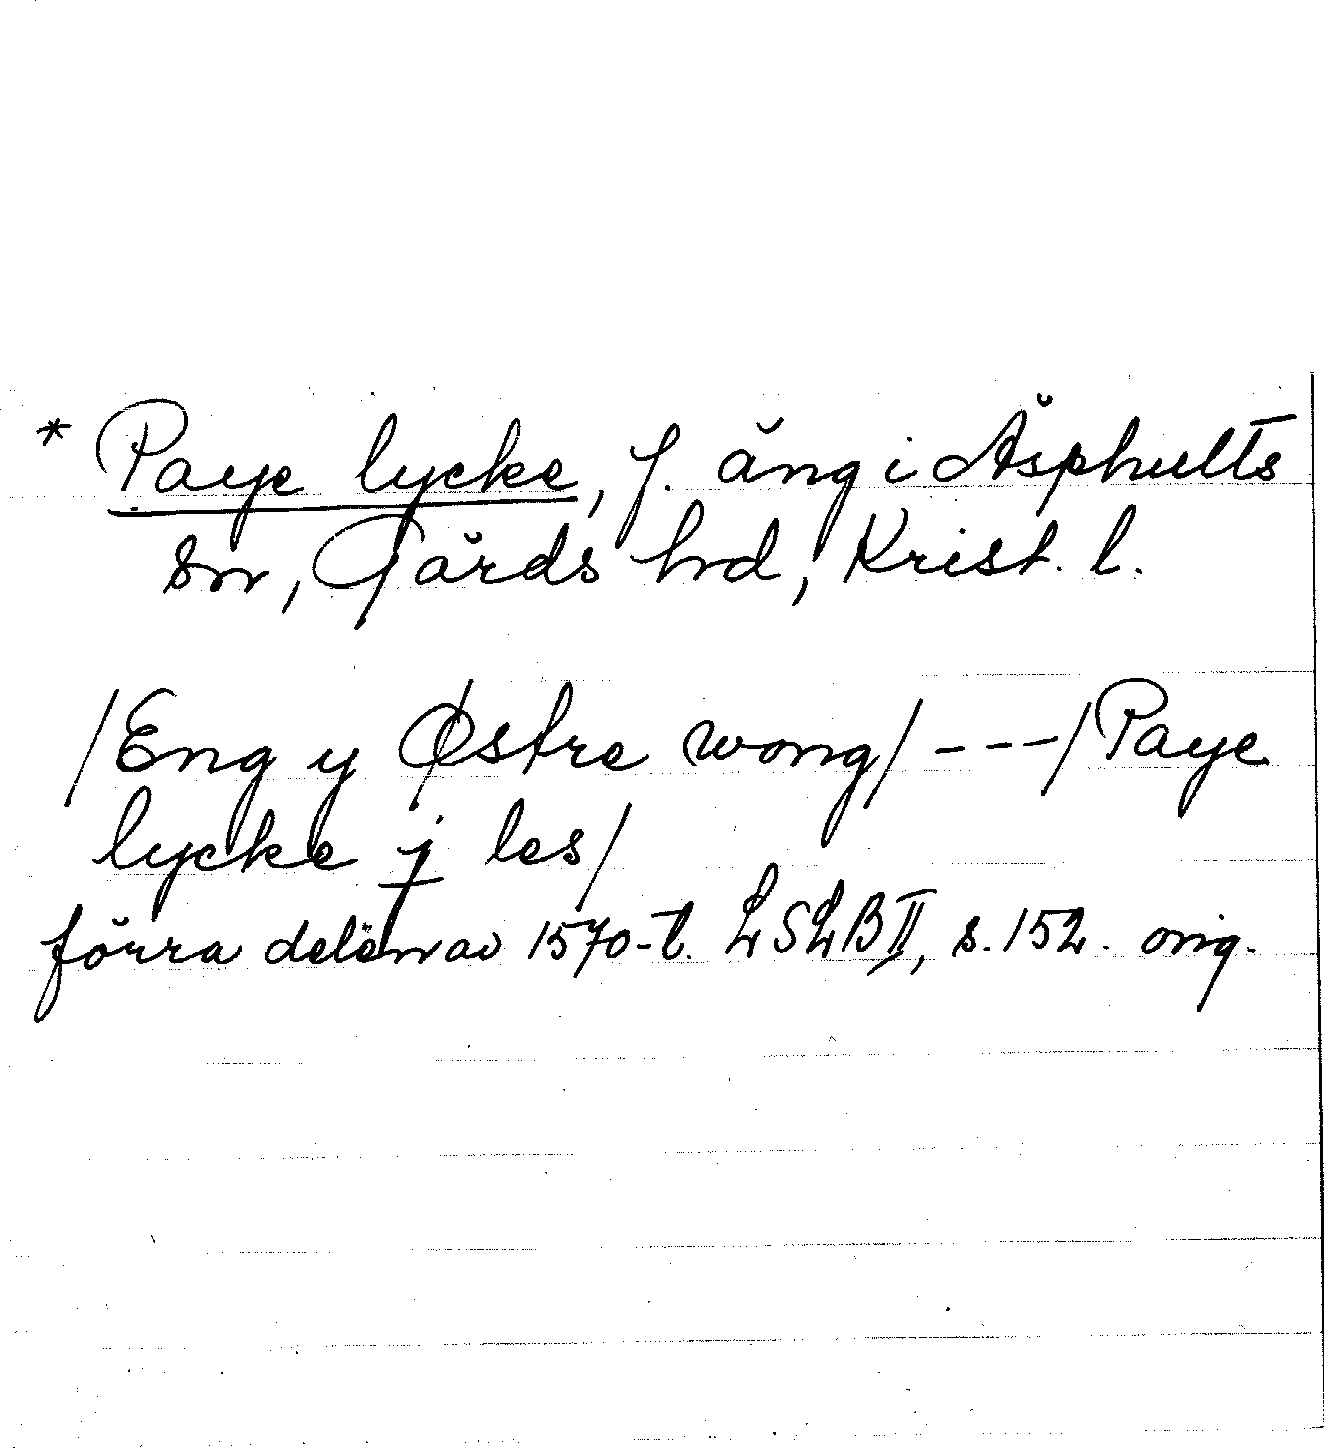 * Paye lycke, f. äng i Äsphults
sn, Gärds hrd, Krist. l.
/Eng y Østre wong/ - - - /Paye
lycke j les/
förra delen av 1570-t. LSLB II, s. 152. orig.